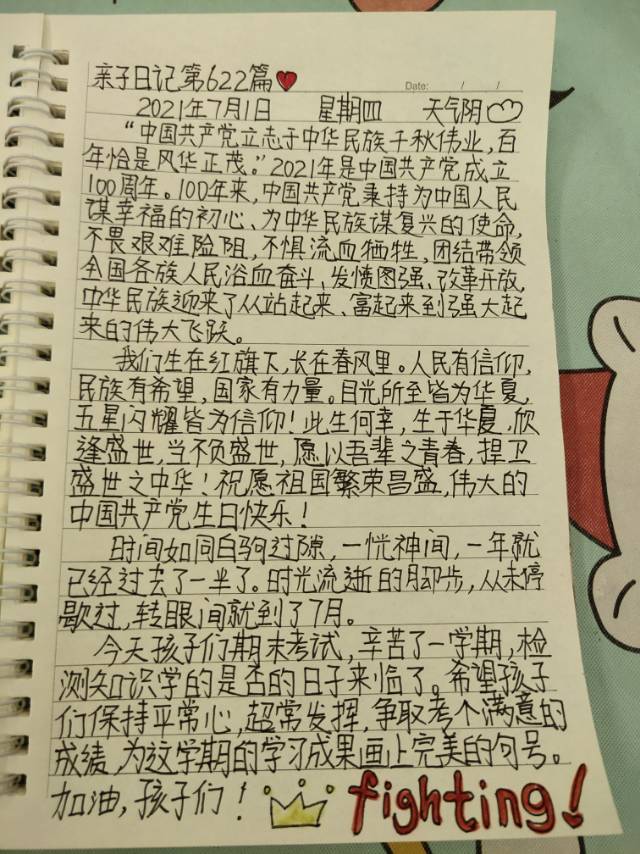 亲子日记第622篇
Date: / /
2021年7月1日 星期四 天气阴
“中国共产党立志于中华民族千秋伟业,百
年恰是风华正茂。”2021年是中国共产党成立
100周年。100年来,中国共产党秉持为中国人民
谋幸福的初心、为中华民族谋复兴的使命,
不畏艰难险阻,不惧流血牺牲,团结带领
全国各族人民浴血奋斗、发愤图强、改革开放,
中华民族迎来了从站起来、富起来到强大起
来的伟大飞跃。
我们生在红旗下,长在春风里。人民有信仰,
民族有希望,国家有力量。目光所至皆为华夏,
五星闪耀皆为信仰!此生何幸,生于华夏,欣
逢盛世,当不负盛世,愿以吾辈之青春,捍卫
盛世之中华!祝愿祖国繁荣昌盛,伟大的
中国共产党生日快乐!
时间如同白驹过隙,一恍神间,一年就
已经过去了一半了。时光流逝的脚步,从未停
歇过,转眼间就到了7月。
今天孩子们期末考试,辛苦了一学期,检
测知识学的是否的日子来临了。希望孩子
们保持平常心,超常发挥,争取考个满意的
成绩,为这学期的学习成果画上完美的句号。
加油,孩子们! fighting!